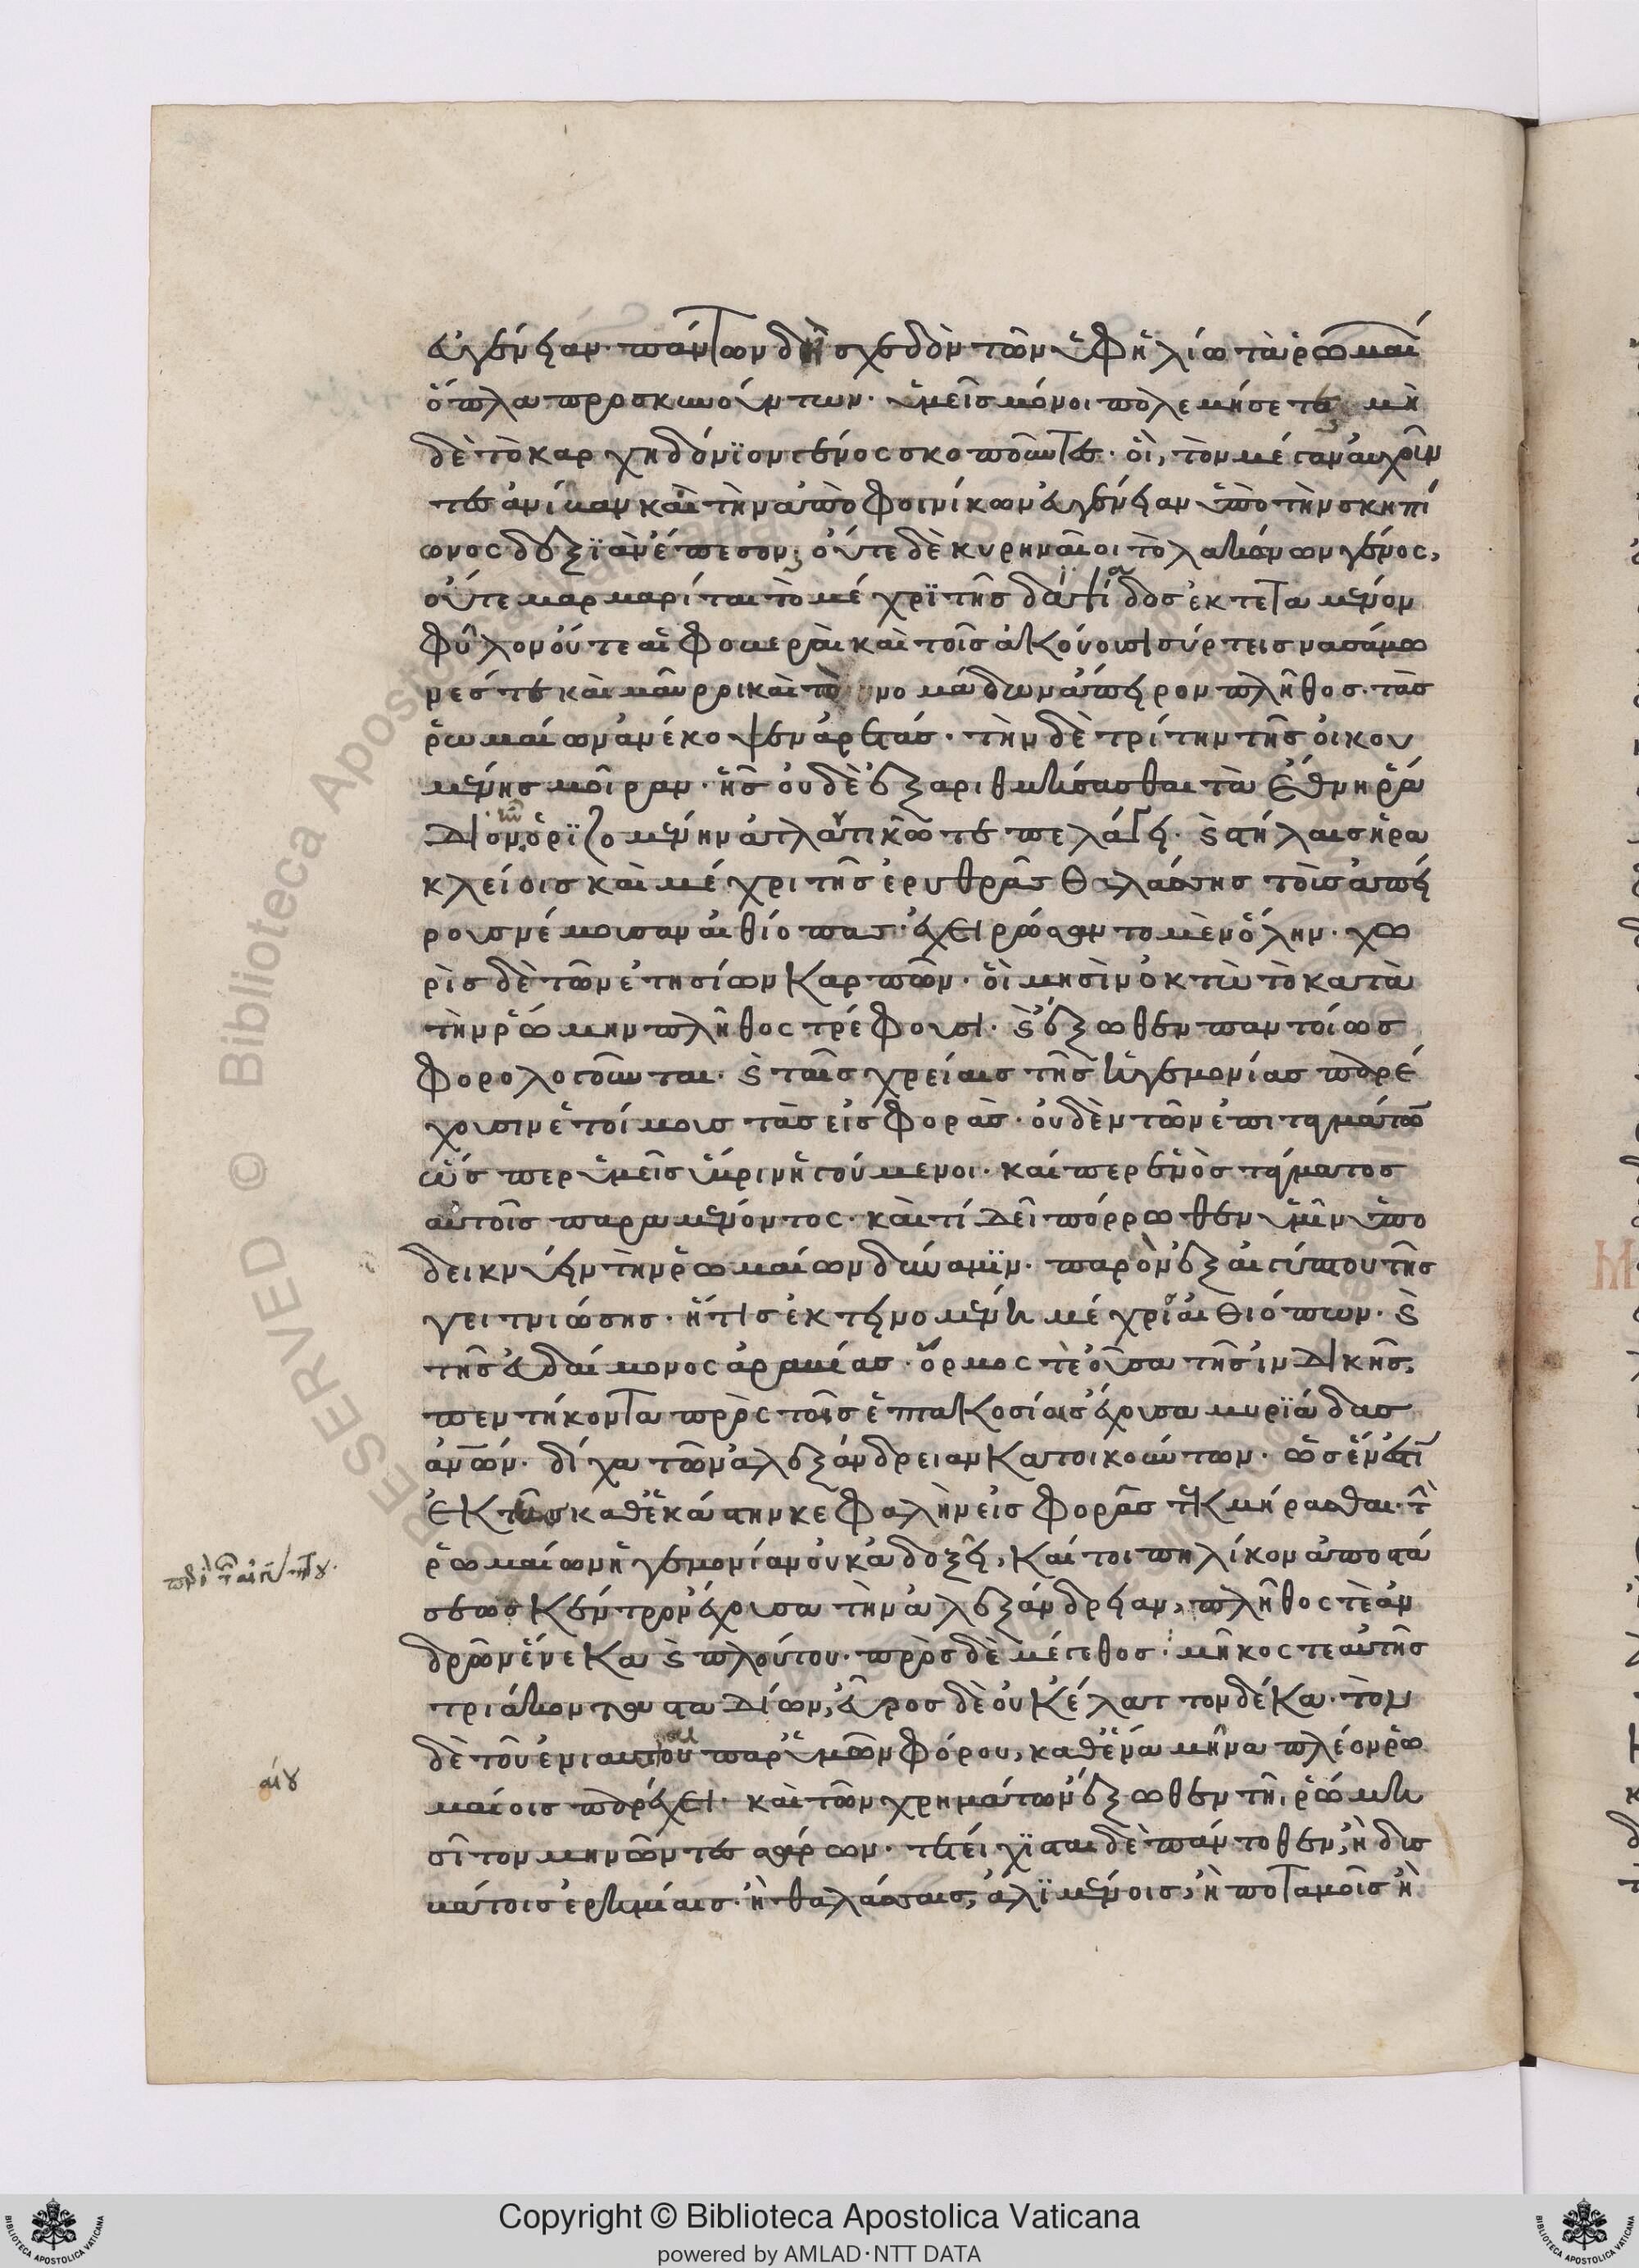 εὐγένειαν· πάντων δὴ σχεδὸν τῶν ὑφ ἡλίω τὰ ῥωμαί
ὅπλα προσκυνούντων· ὑμεῖς μόνοι πολεμήσετε μη
δὲ τὸ καρχηδόνϊον τένος σκοποῦντες· οἳ, τὸν μέγαν αὐχοῦν
τες ἀνίβαν καὶ τὴν ἀπὸ φοινίκων εὐγένειαν ὑπὸ τὴν σκηπί
ωνος δεξϊὰν ἔπεσον· οὔτε δὲ κυρηναῖοι τὸ λακώνων γένος,
οὔτε μαρμαρίται τὸ μέχρϊ τῆς διψάδος ἐκτεταμένον
φῦλον οὔτε αἱ φοβεραὶ καὶ τοῖς ἀκούουσι σύρτεις νασάμω
νές τε καὶ μαῦροι καὶ τὸ νομάδων ἄπειρον πλῆθος· τὰς
ῥωμαίων ἀνέκοψεν ἀρετάς· τὴν δὲ τρίτην τῆς οἰκου
μένης μοῖραν· ἧς οὐδὲ ἐξαριθμήσασθαι τὰ ἔθνη ῥά
διον ὁρϊζομένην ἀτλαντικῶ τε πελάγει· καὶ στήλαις ἡρα
κλείοις καὶ μέχρι τῆς ἐρυθρᾶς θαλάσσης τοὺς ἀπεί
ρους νέμουσαν αἰθίοπας· ἐχειρώσαντο μὲν ὅλην· χω
ρὶς δὲ τῶν ἐτησίων καρπῶν· οἳ μησὶν ὀκτὼ τὸ κατὰ
τὴν ῥώμην πλῆθος τρέφουσι· καὶ ἔξωθεν παντοίως
φορολογοῦνται· καὶ ταῖς χρείαις τῆς ἡγεμονίας παρέ
χουσιν ἑτοίμους τὰς εἰσφοράς· οὐδὲν τῶν ἐπιταγμάτων
ὥσπερ ὑμεῖς ὕβριν ἡγούμενοι· καίπερ ἑνὸς τάγματος
αὐτοῖς παραμένοντος· καὶ τί δεῖ πόρρωθεν ὑμῖν ὑπο
δεικνύειν τὴν ῥωμαίων δύναμϊν· παρὸν ἐξ αἰγύπτου τῆς
γειτνιώσης· ἥτις ἐκτεινομένη μέχρϊ αἰθιόπων· καὶ
τῆς εὐδαίμονος ἀραβίας· ὅρμος τὲ οὖσα τῆς ἰνδικῆς,
πεντήκοντα πρὸς τοῖς ἑπτακοσίαις ἔχουσα μυρϊάδας
ἀνων· δίχα τῶν ἀλεξάνδρειαν κατοικούντων· ὡς ἔνεστιν
ἐκ τῆς καθ ἑκάστην κεφαλὴν εἰσφορᾶς τεκμήρασθαι· τὴν
ῥωμαίων ἡγεμονίαν οὐκ ἀδοξεῖ, καίτοι πηλίκον ἀποστά
σεως κέντρον ἔχουσα τὴν ἀλεξάνδρειαν, πλῆθος τὲ ἀν
δρῶν ἕνεκα καὶ πλούτου· πρὸς δὲ μέγεθος· μῆκος τε αὐτῆς
τριάκοντα σταδίων, εὖρος δὲ οὐκ ἔλαττον δέκα· τὸν
δὲ τοῦ ἐνιαυσίου παρ ὑμῶν φόρου, καθ ἕνα μῆνα πλέον ῥω
μαίοις παρέχει· καὶ τῶν χρημάτων ἔξωθεν τῆ ῥώμη
σῖτον μηνῶν τεσσάρων· τετείχϊσται δὲ πάντοθεν, ἢ δυσ
βάτοις ἐρημίαις· ἢ θαλάσσαις, ἀλϊμένοις, ἢ ποταμοῖς ἢ